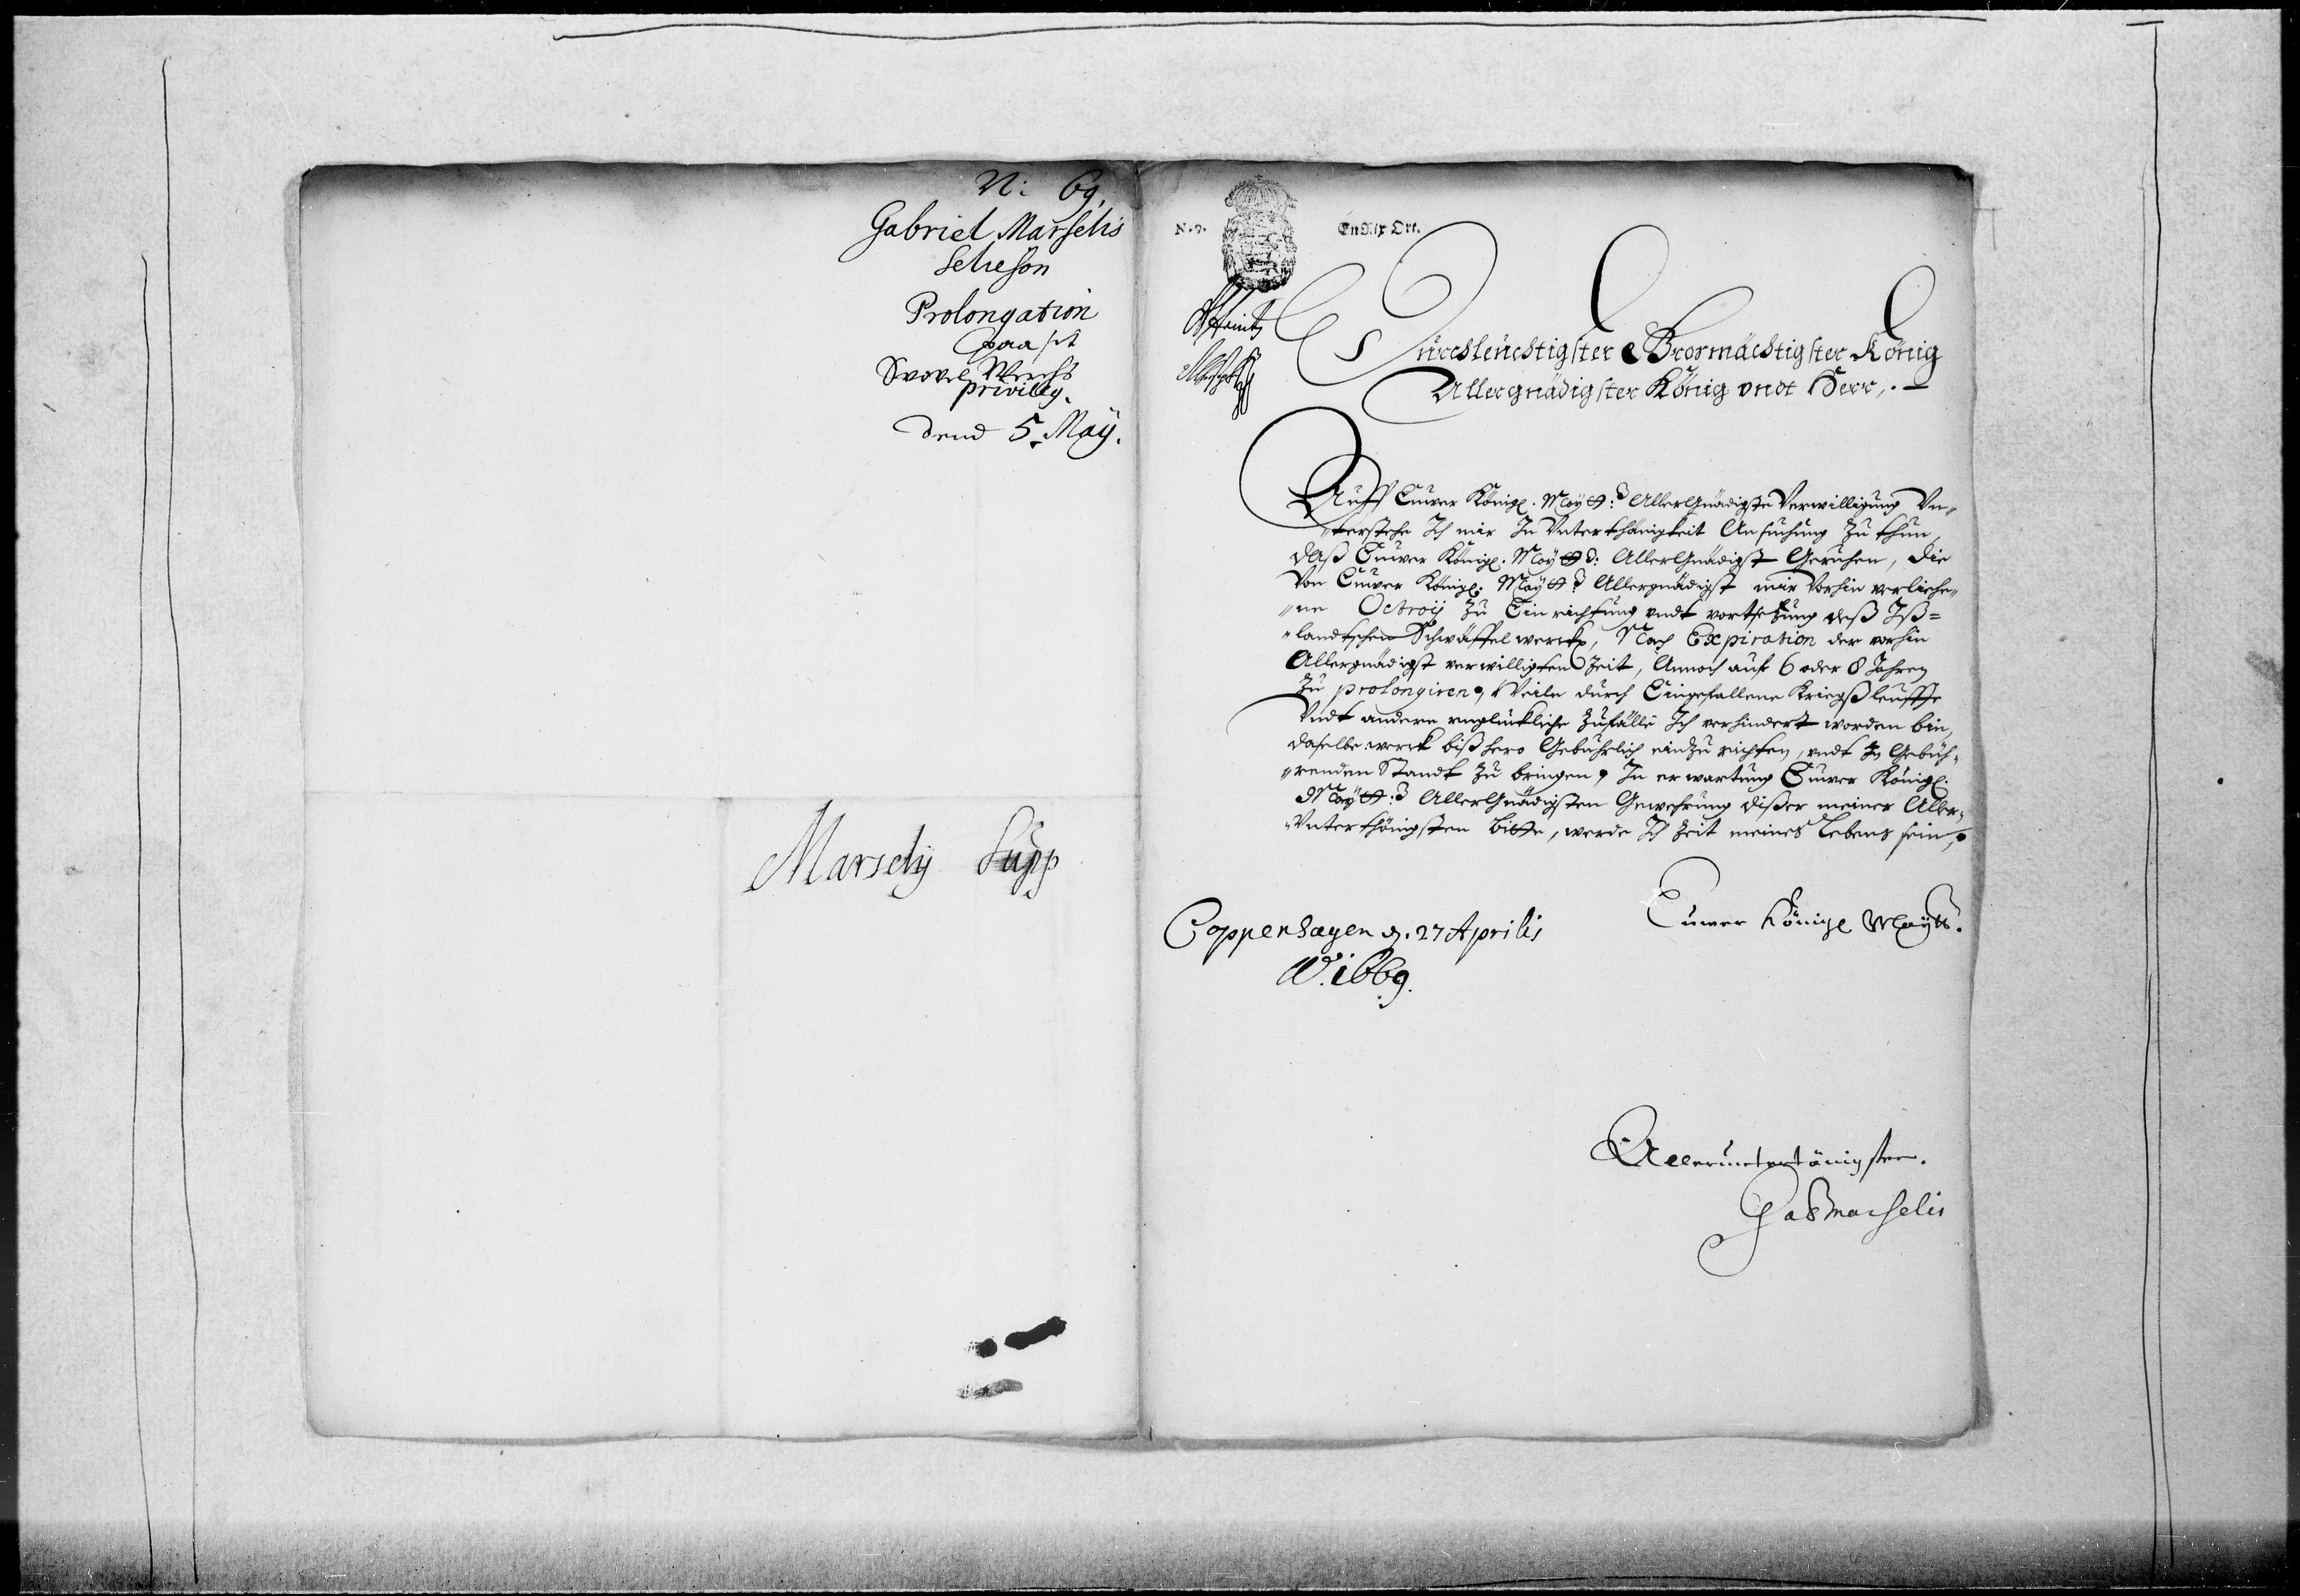 N: 69.
Gabriel Marselis
Selieson
Prolongation
paa sit
Svovel Werchs
privileg.
dend 5. Maÿ.
Marselij Supp
N. 7.
En Rix Ort.
Dürchleüchtigster Grosmächtigster König
Allergnädigster König vndt Herr,.
Auff Euwer Königl. Maÿtt: AllerGnädigste Verwilligung Vn„
„terstehe Ich mir In Vnterthänigkeit Ansuchung Zu thun,
daß Euwer Königl. Maÿtt: AllerGnädigst Geruhen, die
Von Euwer Königl: Maÿtt: Allergnädigst mir Vorhin verliehe„
„ne Octroÿ Zu Einrichtung vndt vortsetzung deß Iß=
„landtschen Schwäffelwercks, Nach Expiration der vorhin
Allergnädigst verwilligten Zeit, Annoch auf 6 oder 8 Jahren
Zu prolongiren, Weiln durch Eingefallene Kriegßleuffte
Vndt andere vnglückliche Zufälle Ich verhindert worden bin,
daselbe werck bißhero Gebührlich einzurichten, vndt In Gebüh„
„renden Standt Zu bringen, In erwartung Euwer Königl.
Maÿtt: AllerGnädigsten Gewehrung dißer meiner Aller„
„Vnterthänigsten bitte, werde Ich Zeit meines Lebens sein,
Euwer Königl Maÿtt.
Coppenhagen d. 27 Aprilis
Ao. 1669.
Allerunterthänigster.
Gab Marselis